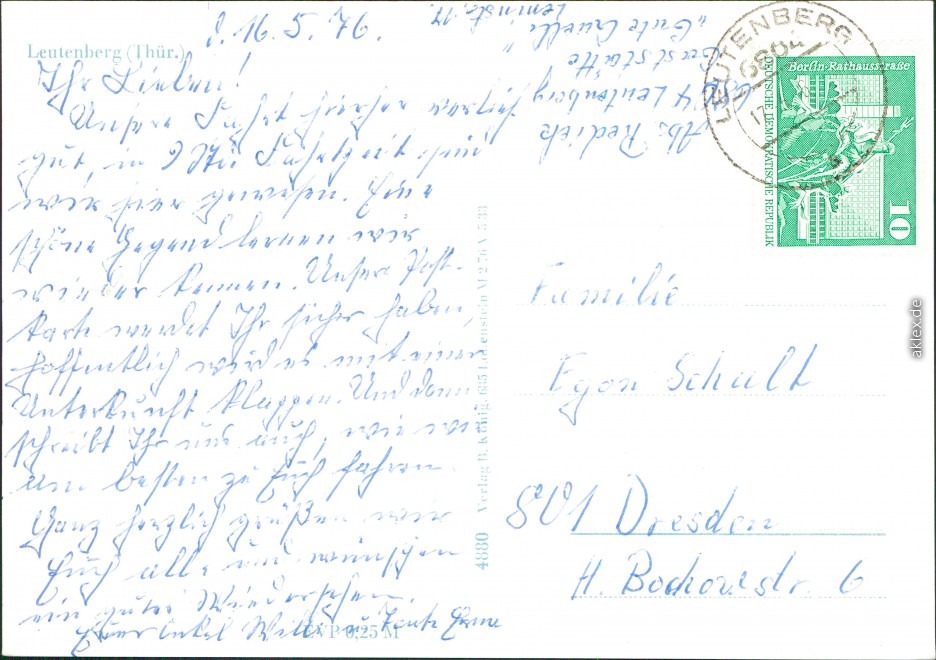 Leutenberg (Thür.)
d. 16.5.76.
Ihr Lieben!
Unsere Fahrt hierher verlief
gut, in 6 Std. Fahrzeit sind
wir hier gewesen. Eine
schöne Gegend lernen wir
wieder kennen. Unsere Post-
karte werdet Ihr sicher haben,
hoffentlich wird es mit einer
Unterkunft klappen. Und dann
schreibt Ihr uns auch, wie wir
am besten zu Euch fahren.
Ganz herzlich grüßen wir
Euch alle und wünschen
ein gutes Wiedersehen.
Euer Onkel Willi u. Tante Erna
EVP 0,25 M
Abs. Redick
Leutenberg
Gaststätte
"Gute Quelle"
Leninstr. 17
4880 Verlag B. König, 685 Lobenstein M 2/76 A 533
LEUTENBERG
6804
Berlin-Rathausstraße
DEUTSCHE DEMOKRATISCHE REPUBLIK
10
Familie
Egon Schult
801 Dresden
H. Bockowstr. 6
aklex.de